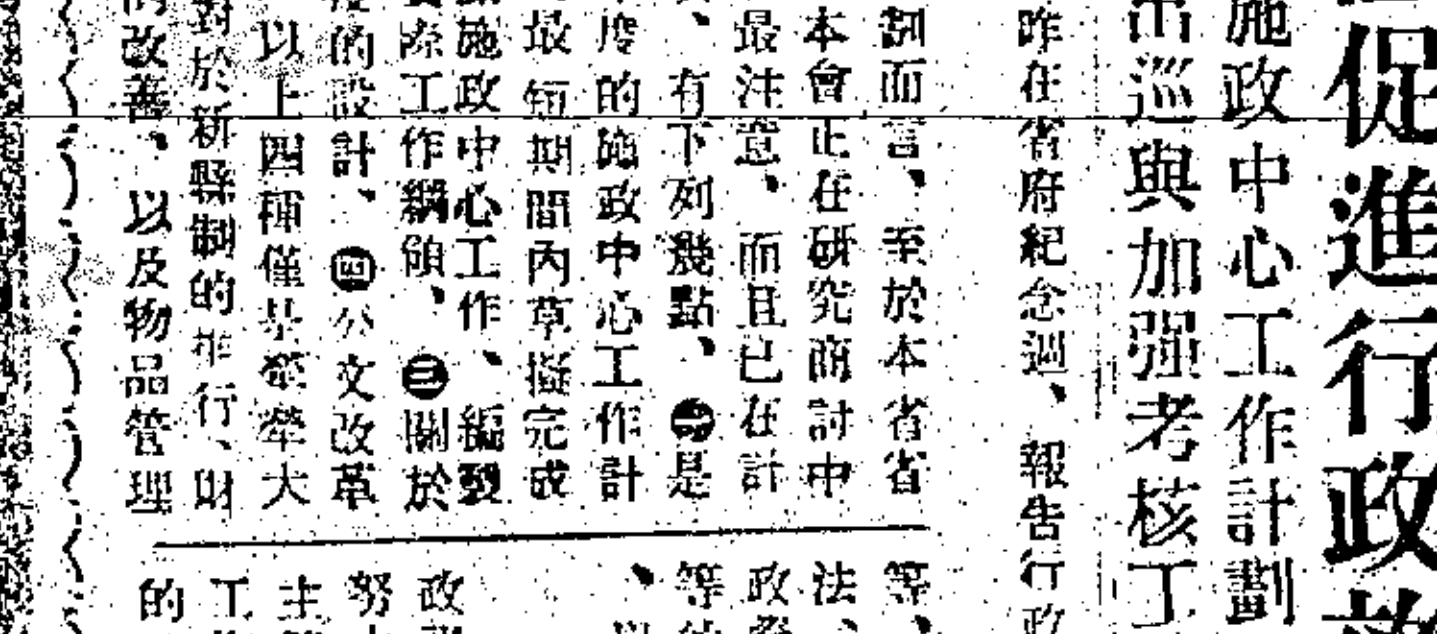 促進行政
施政中心工作計劃
出巡與加强考核工
昨在省府紀念週、報告行政
劃而言、至於本省省
本會正在研究商討中
最注意、而且已在計
、有下列幾點、㊀是
度的施政中心工作計
最短期間內草擬完成
施政中心工作、編製
際工作綱領、㊂關於
的設計、㊃公文改革
以上四種僅是犖犖大
對於新縣制的推行、財
的改善、以及物品管理
等、
法、
政
等
、
政
努
主
工
的